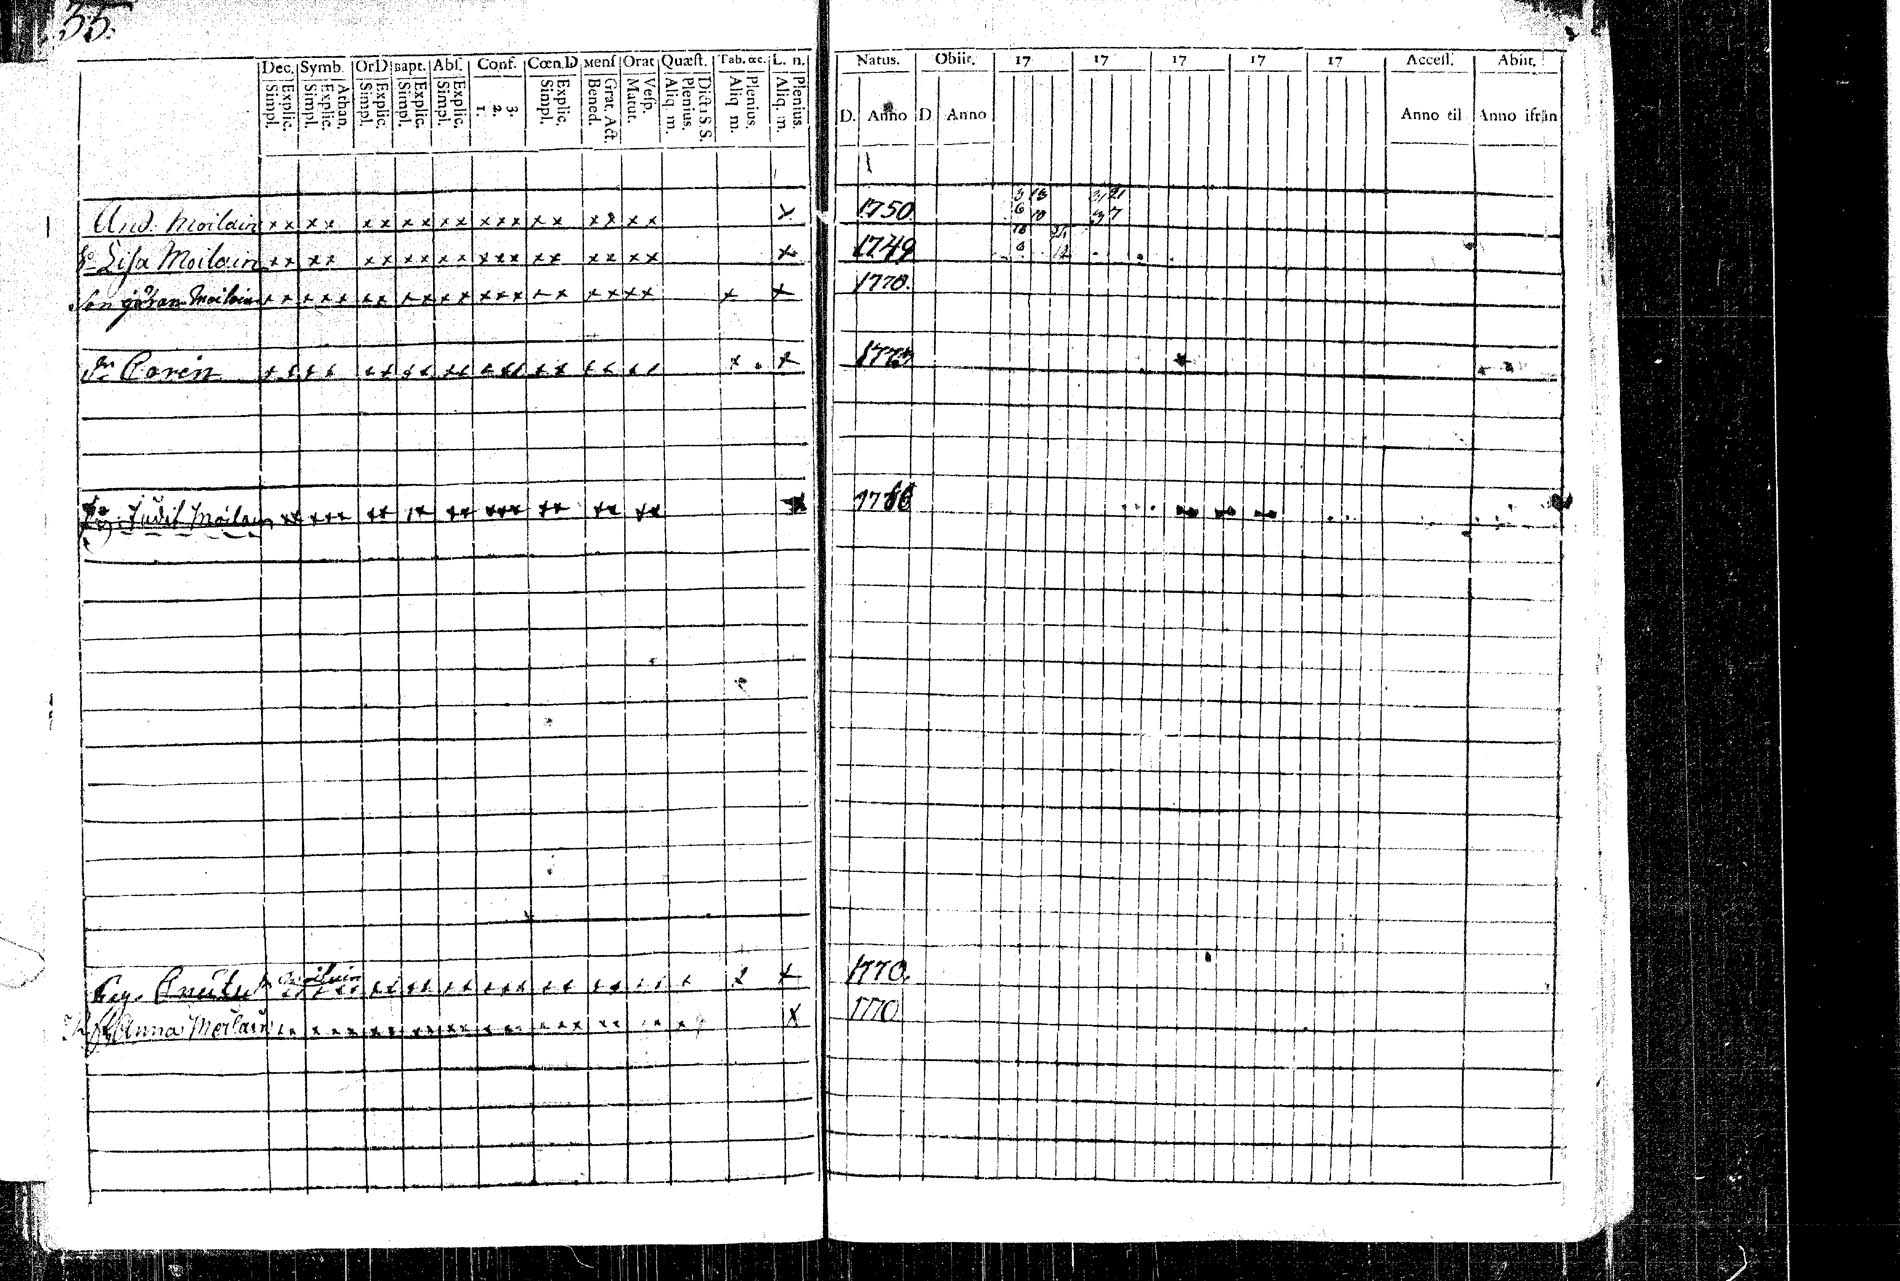 35.
Dec. Symb. Or D Bapt. Abs. Conf. Cœn. D Mens Orat Quæst. Tab. œc. L. n. Natus. Obiit. 17 17 17 17 17 Access. Abiit.
Simpl. Explic. Simpl. Explic. Athan. Simpl. Explic. Simpl. Explic. Simpl. Explic. 1. 2. 3. Simpl. Explic. Bened. Grat. Act. Matut. Vesp. Aliq. m. Plenius. Dict. S S. Aliq. m. Plenius. Aliq. m. Plenius. D. Anno D Anno Anno til Anno ifrån
And. Moilain x x x x x x x x x x x x x x x x x x x x 1750. 3 13 21
6 10 3 7
Lisa Moilain x x x x x x x x x x x x x x x x x x x x 1749
Son Göran Moilain x x x x x x x x x x x x x x x x x x x x x x 1770.
Carin x x x x x x x x x x x x x x x x x x x x x 1773
Judit Moilain x x x x x x x x x x x x x x x x x x x x x 1786
Moilain x x x x x x x x x x x x x x x x x x x x x x x x 1770.
Anna Moilain x x x x x x x x x x x x x x x x x x x x x x x 1770